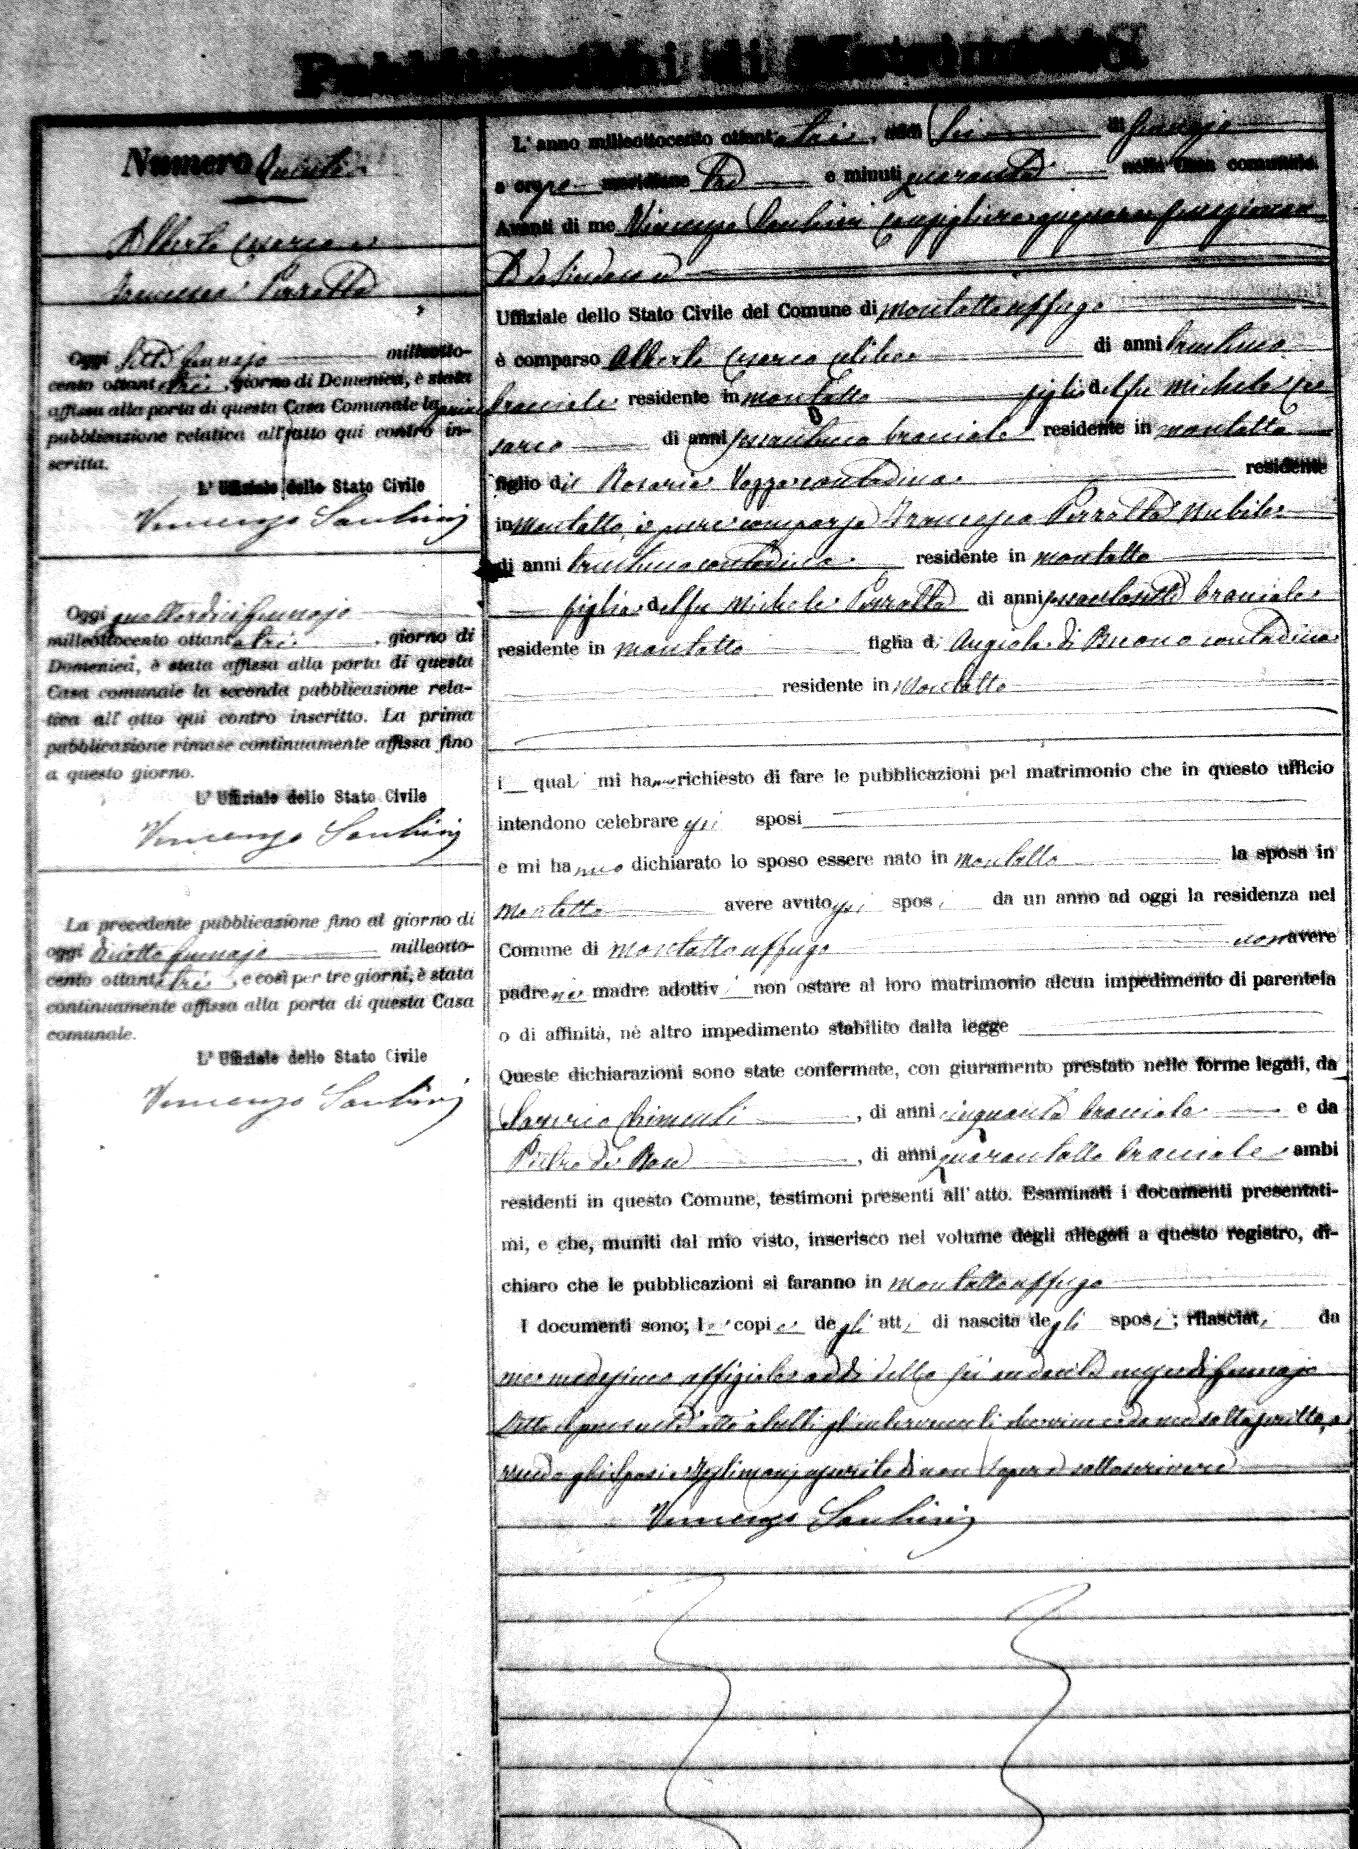 Pubblicazioni di Matrimonio
Numero
Alberto Cesario e
Francesca Perrotta
Oggi sette Gennajo milleotto-
cento ottantatre, giorno di Domenica, è stata
affissa alla porta di questa Casa Comunale la prima
pubblicazione relativa all'atto qui contro in-
scritta.
L'Uffiziale dello Stato Civile
Vincenzo Santurri
Oggi quattordici Gennajo
milleottocento ottantatre, giorno di
Domenica, è stata affissa alla porta di questa
Casa comunale la seconda pubblicazione rela-
tiva all'atto qui contro inscritto. La prima
pubblicazione rimase continuamente affissa fino
a questo giorno.
L'Uffiziale dello Stato Civile
Vincenzo
La precedente pubblicazione fino al giorno di
oggi diciotto Gennajo milleotto-
cento ottantatre, e così per tre giorni, è stata
continuamente affissa alla porta di questa Casa
comunale.
L'Uffiziale dello Stato Civile
Vincenzo
L'anno milleottocento ottantatre, addì sei di Gennajo
a ore pomeridiane tre e minuti quaranta nella Casa comunale.
Avanti di me Vincenzo Consigliere
da Sindaco
Uffiziale dello Stato Civile del Comune di Montalto Uffugo
è comparso Alberto Cesario celibe di anni trentuno
bracciale residente in Montalto figlio del fu Michele Ce
sario di anni sessantuno bracciale residente in Montalto
figlio di Rosaria contadina residente
in Montalto, è pure comparsa Francesca Perrotta nubile
di anni trentuno contadina residente in Montalto
figlia del fu Michele Perrotta di anni sessantasette bracciale
residente in Montalto figlia di Angiola di Buono contadina
residente in Montalto
i quali mi hanno richiesto di fare le pubblicazioni pel matrimonio che in questo ufficio
intendono celebrare essi sposi
e mi hanno dichiarato lo sposo essere nato in Montalto la sposa in
Montalto avere avuto essi sposi da un anno ad oggi la residenza nel
Comune di Montalto Uffugo non avere
padre nè madre adottivi non ostare al loro matrimonio alcun impedimento di parentela
o di affinità, nè altro impedimento stabilito dalla legge
Queste dichiarazioni sono state confermate, con giuramento prestato nelle forme legali, da
Saverio Chimenti, di anni cinquanta bracciale e da
Pietro De Rose, di anni quarantotto bracciale ambi
residenti in questo Comune, testimoni presenti all'atto. Esaminati i documenti presentati-
mi, e che, muniti dal mio visto, inserisco nel volume degli allegati a questo registro, di-
chiaro che le pubblicazioni si faranno in Montalto Uffugo
I documenti sono; le copie degli atti di nascita degli sposi; rilasciati da
me medesimo uffiziale addì detto sei andante mese di Gennajo
Letto il presente atto a tutti gl'intervenuti si è da me sottoscritto, a
vendo gli sposi e testimonj asserito di non sapere sottoscrivere
Vincenzo